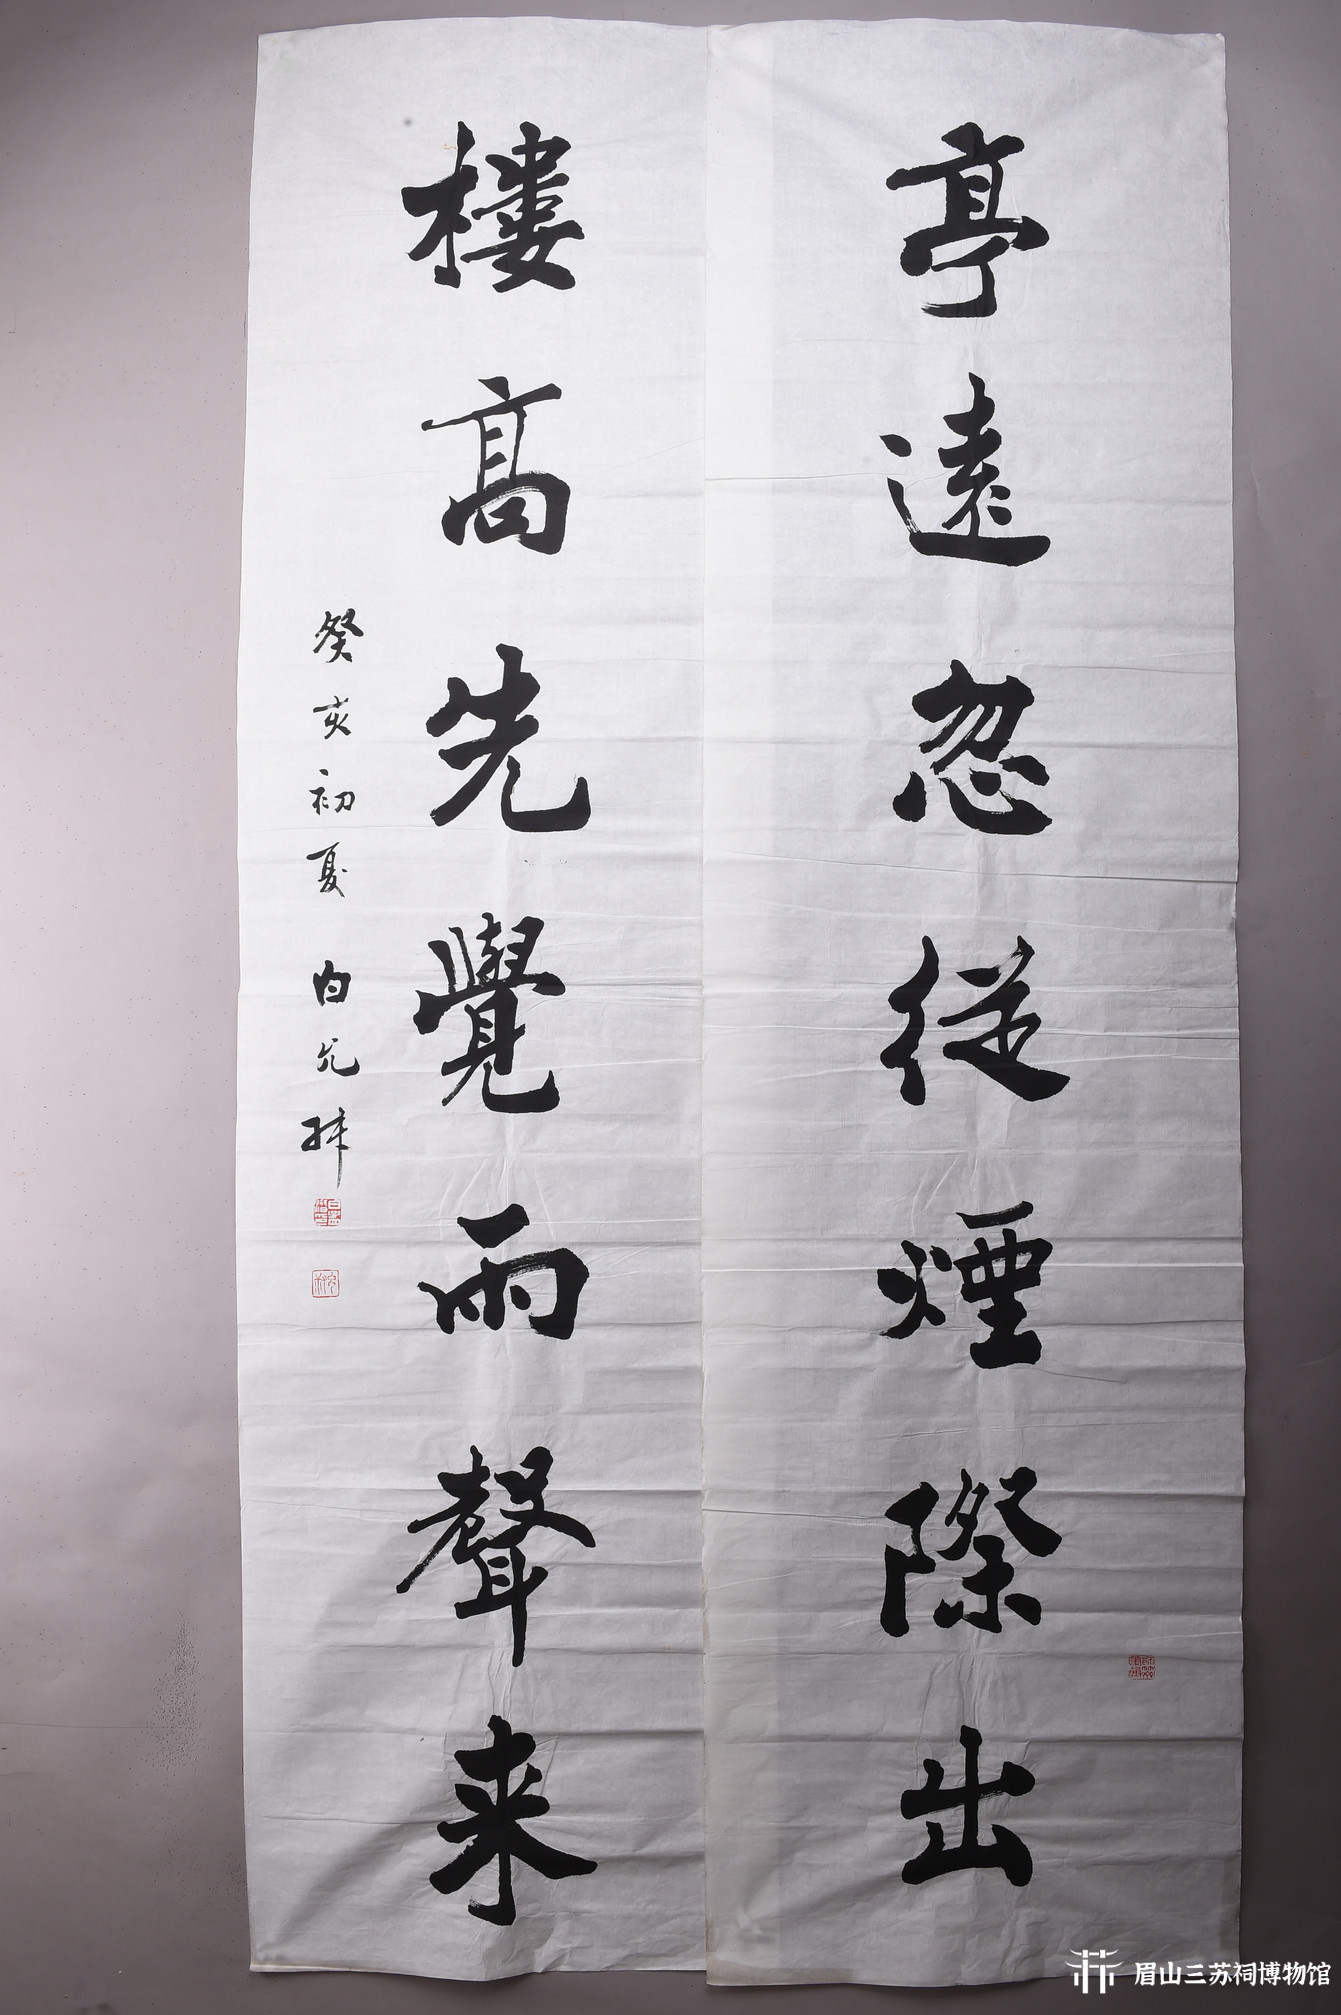 亭遠忽從煙際出
樓高先覺雨聲来
癸亥初夏 白允叔
眉山三苏祠博物馆